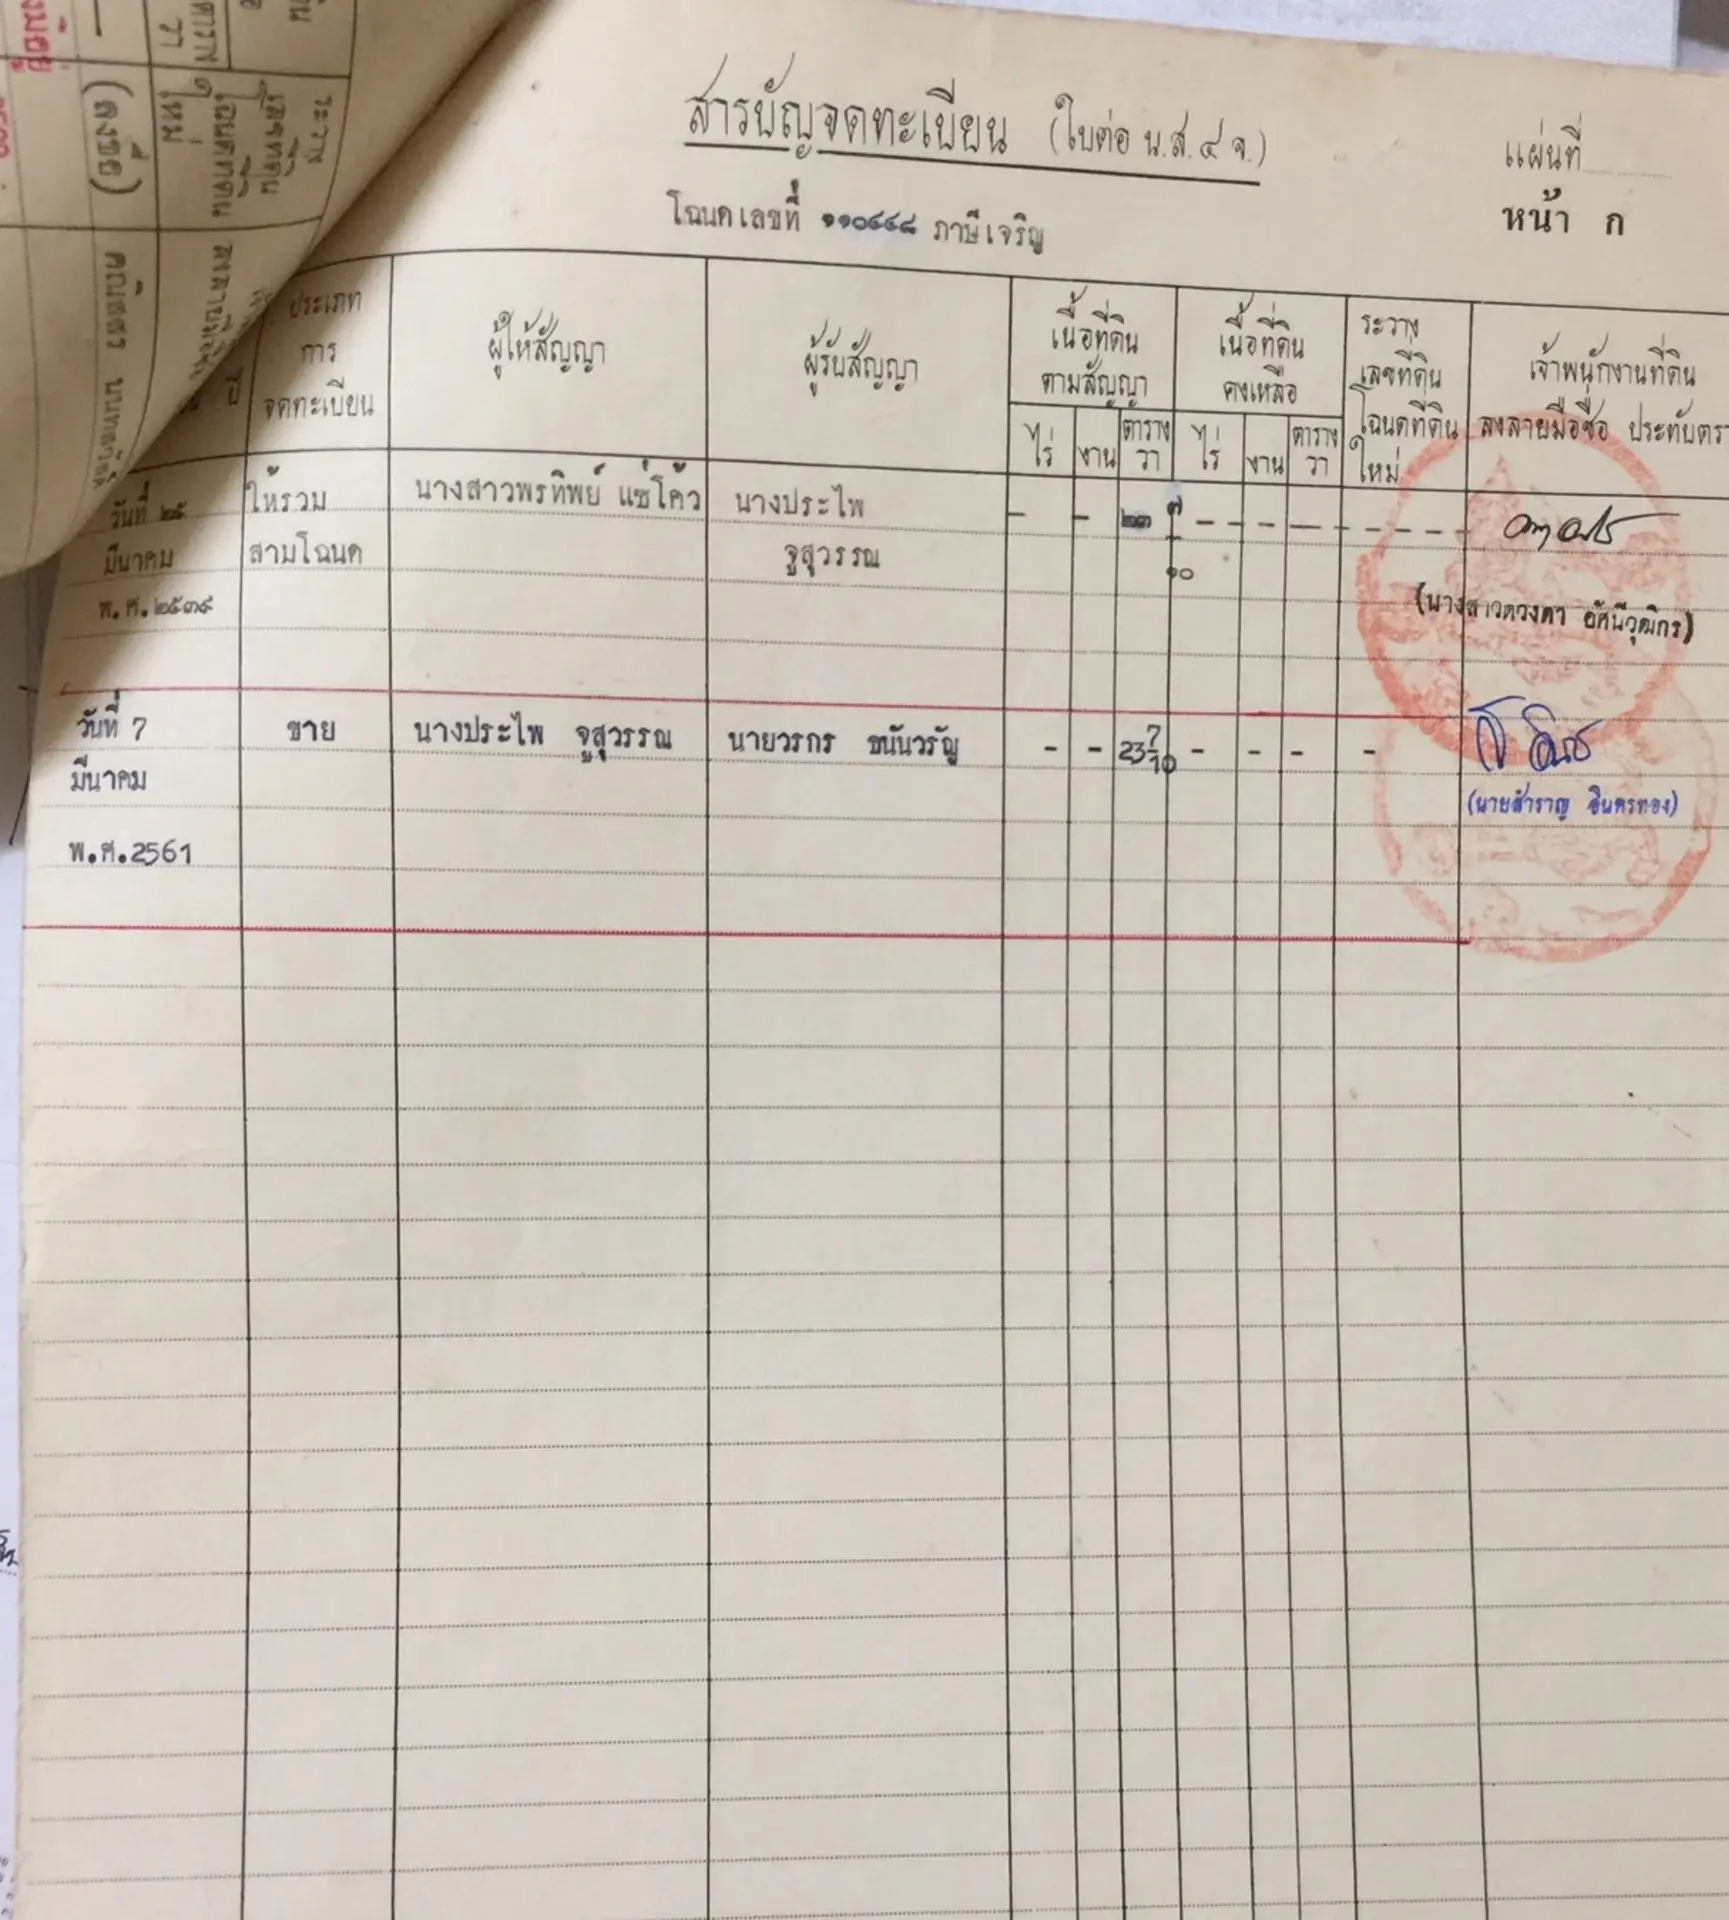 สารบัญจดทะเบียน (ใบต่อ น.ส.๔ จ.)
แผ่นที่
โฉนดเลขที่ ๑๑๐๔๔๘ ภาษีเจริญ
หน้า ก
ประเภท
การ
จดทะเบียน
ผู้ให้สัญญา
ผู้รับสัญญา
เนื้อที่ดิน
ตามสัญญา
ไร่ งาน ตาราง
วา
เนื้อที่ดิน
คงเหลือ
ไร่ งาน ตาราง
วา
ระวาง
เลขที่ดิน
โฉนดที่ดิน
ใหม่
เจ้าพนักงานที่ดิน
ลงลายมือชื่อ ประทับตรา
วันที่ ๒๕ ให้รวม นางสาวพรทิพย์ แซ่โค้ว นางประไพ - - ๒๓ ๗ - - - - - - - -
มีนาคม สามโฉนด จูสุวรรณ ๑๐
พ.ศ.๒๕๓๙
(นางสาวดวงตา อัศนีวุฒิกร)
วันที่ 7 ขาย นางประไพ จูสุวรรณ นายวรกร ขนันวรัญ - - 23 7/10 - - - -
มีนาคม
(นายสำราญ อินทรทอง)
พ.ศ.2561
(ลงชื่อ)
ระวาง
เลขที่ดิน
โฉนดที่ดิน
ใหม่